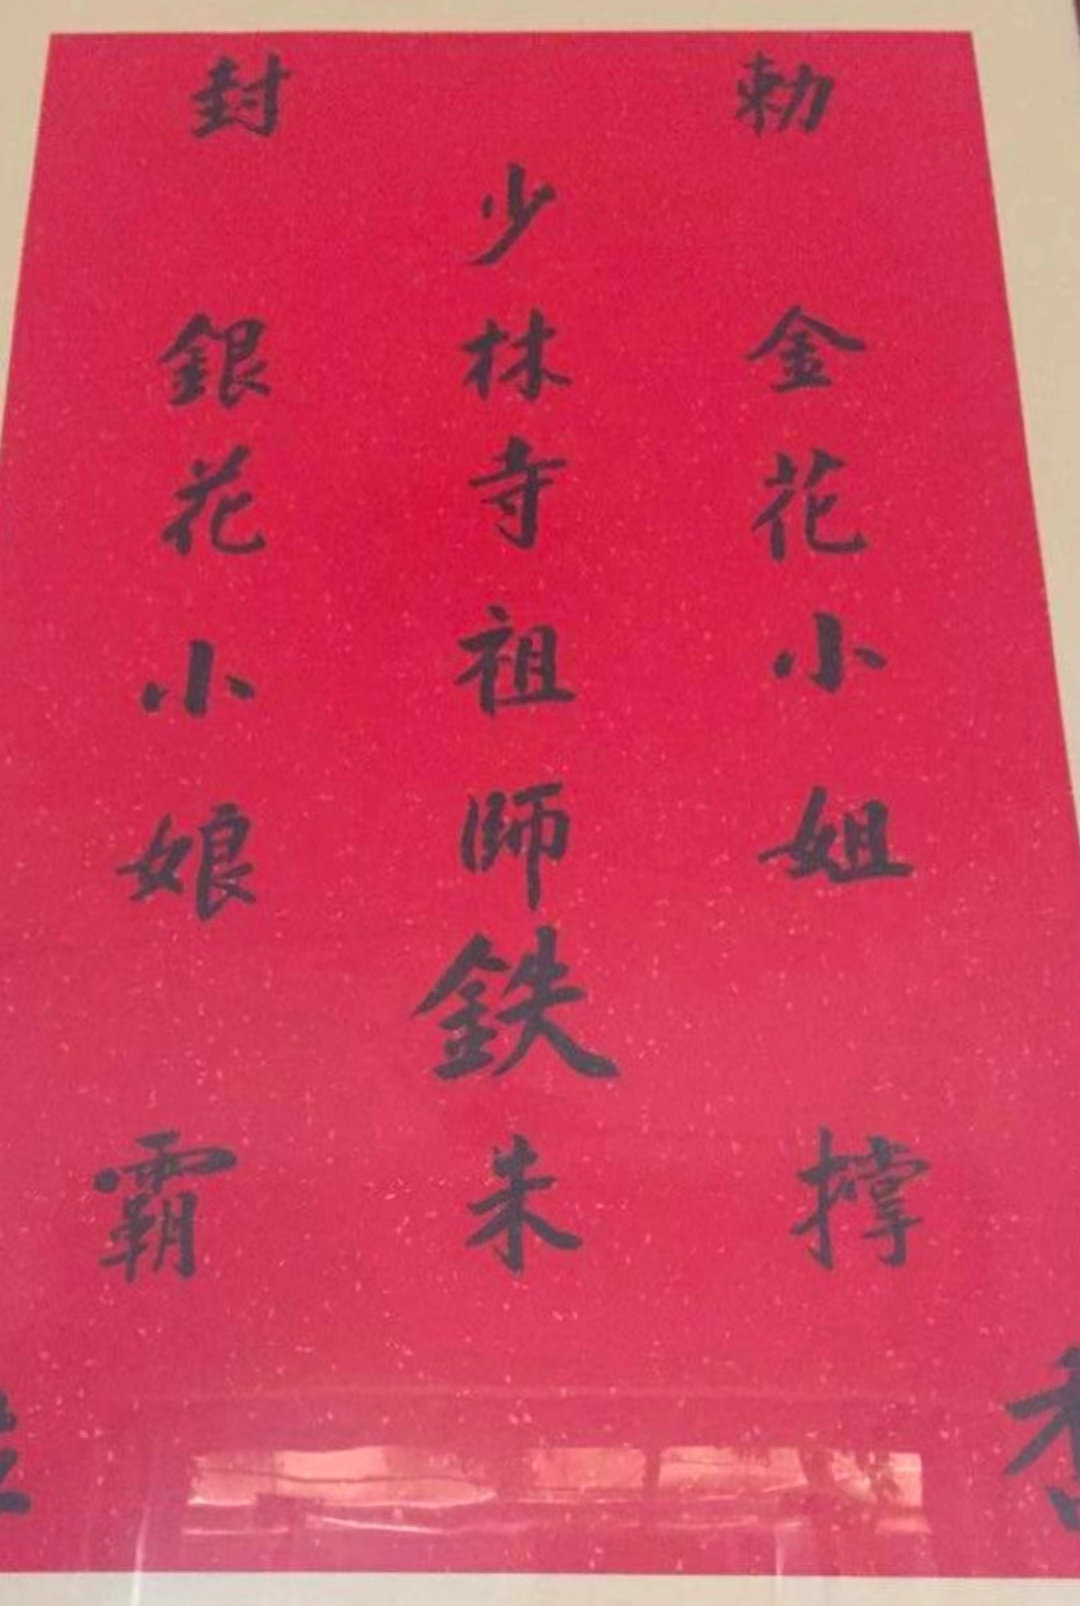 勅封
金花小姐
少林寺祖師鉄朱
銀花小娘
撑
霸